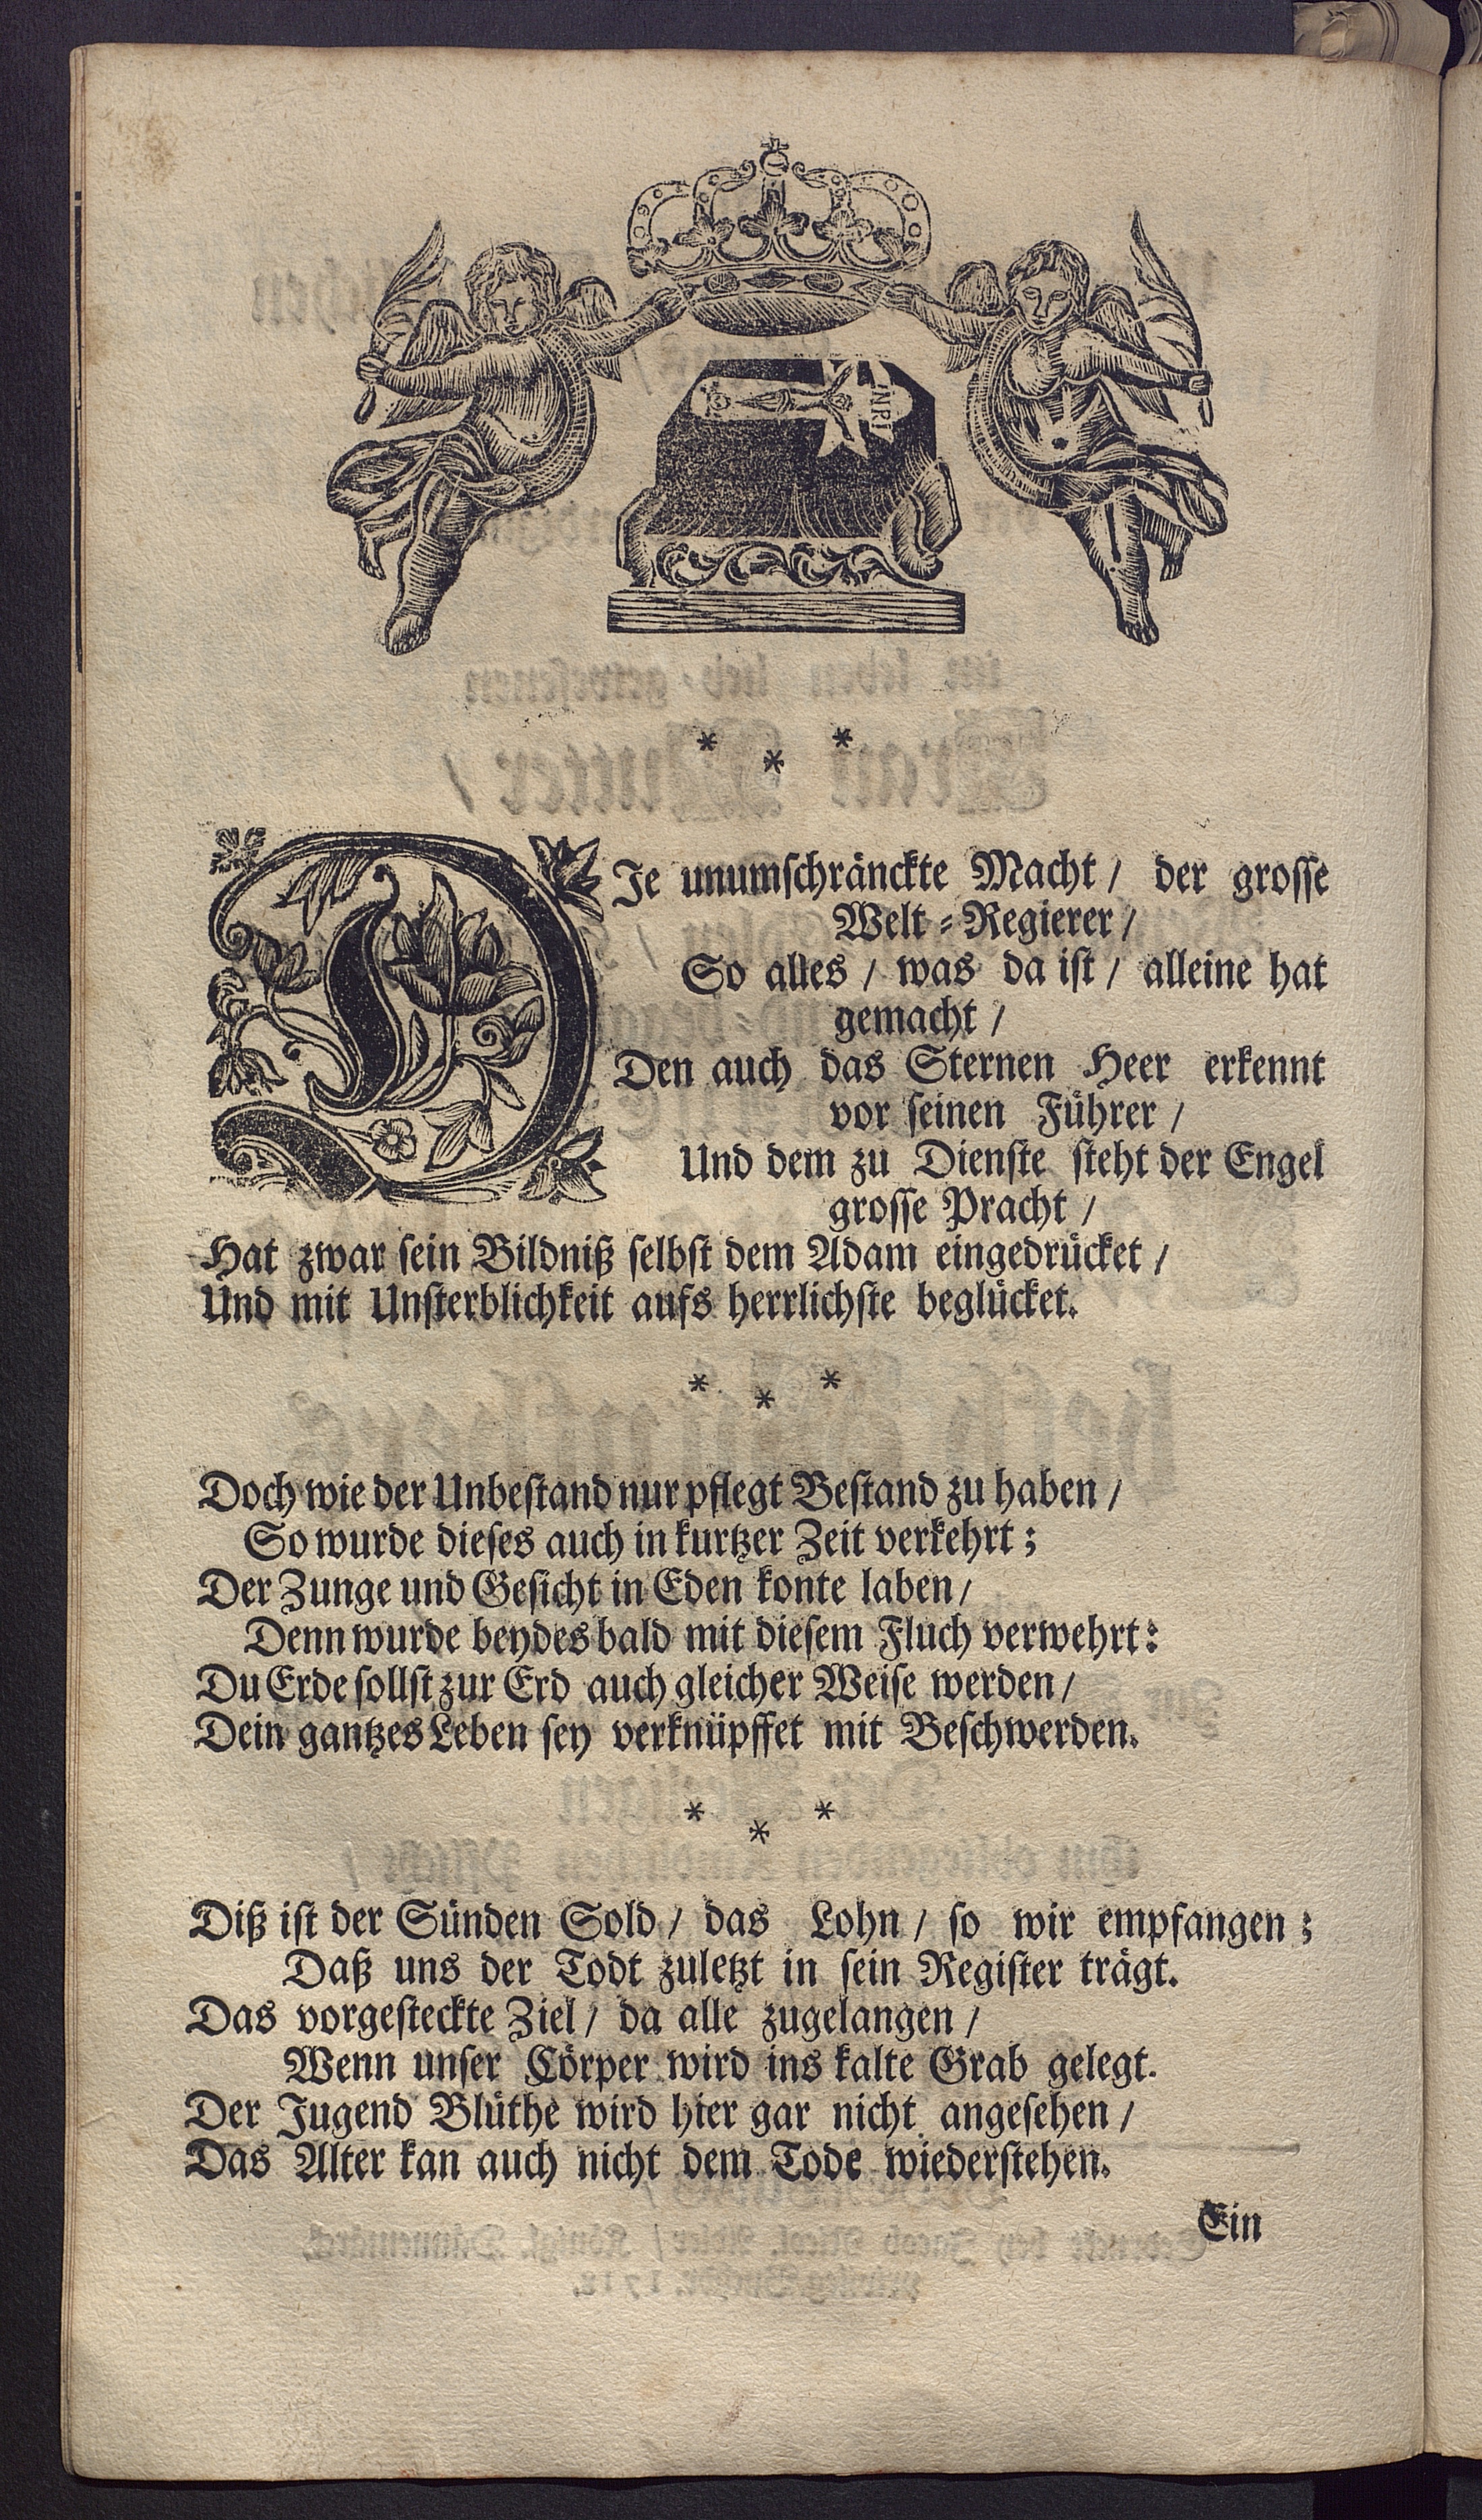 INRI
* * *
DJe unumschränckte Macht / der grosse
Welt-Regierer /
So alles / was da ist / alleine hat
gemacht /
Den auch das Sternen Heer erkennt
vor seinen Führer /
Und dem zu Dienste steht der Engel
grosse Pracht /
Hat zwar sein Bildniß selbst dem Adam eingedrücket /
Und mit Unsterblichkeit aufs herrlichste beglücket.
* * *
Doch wie der Unbestand nur pflegt Bestand zu haben /
So wurde dieses auch in kurtzer Zeit verkehrt;
Der Zunge und Gesicht in Eden konte laben /
Denn wurde beydes bald mit diesem Fluch verwehrt:
Du Erde sollst zur Erd auch gleicher Weise werden /
Dein gantzes Leben sey verknüpffet mit Beschwerden.
* * *
Diß ist der Sünden Sold / das Lohn / so wir empfangen;
Daß uns der Todt zuletzt in sein Register trägt.
Das vorgesteckte Ziel / da alle zugelangen /
Wenn unser Cörper wird ins kalte Grab gelegt.
Der Jugend Blüthe wird hier gar nicht angesehen /
Das Alter kan auch nicht dem Tode wiederstehen.
Ein